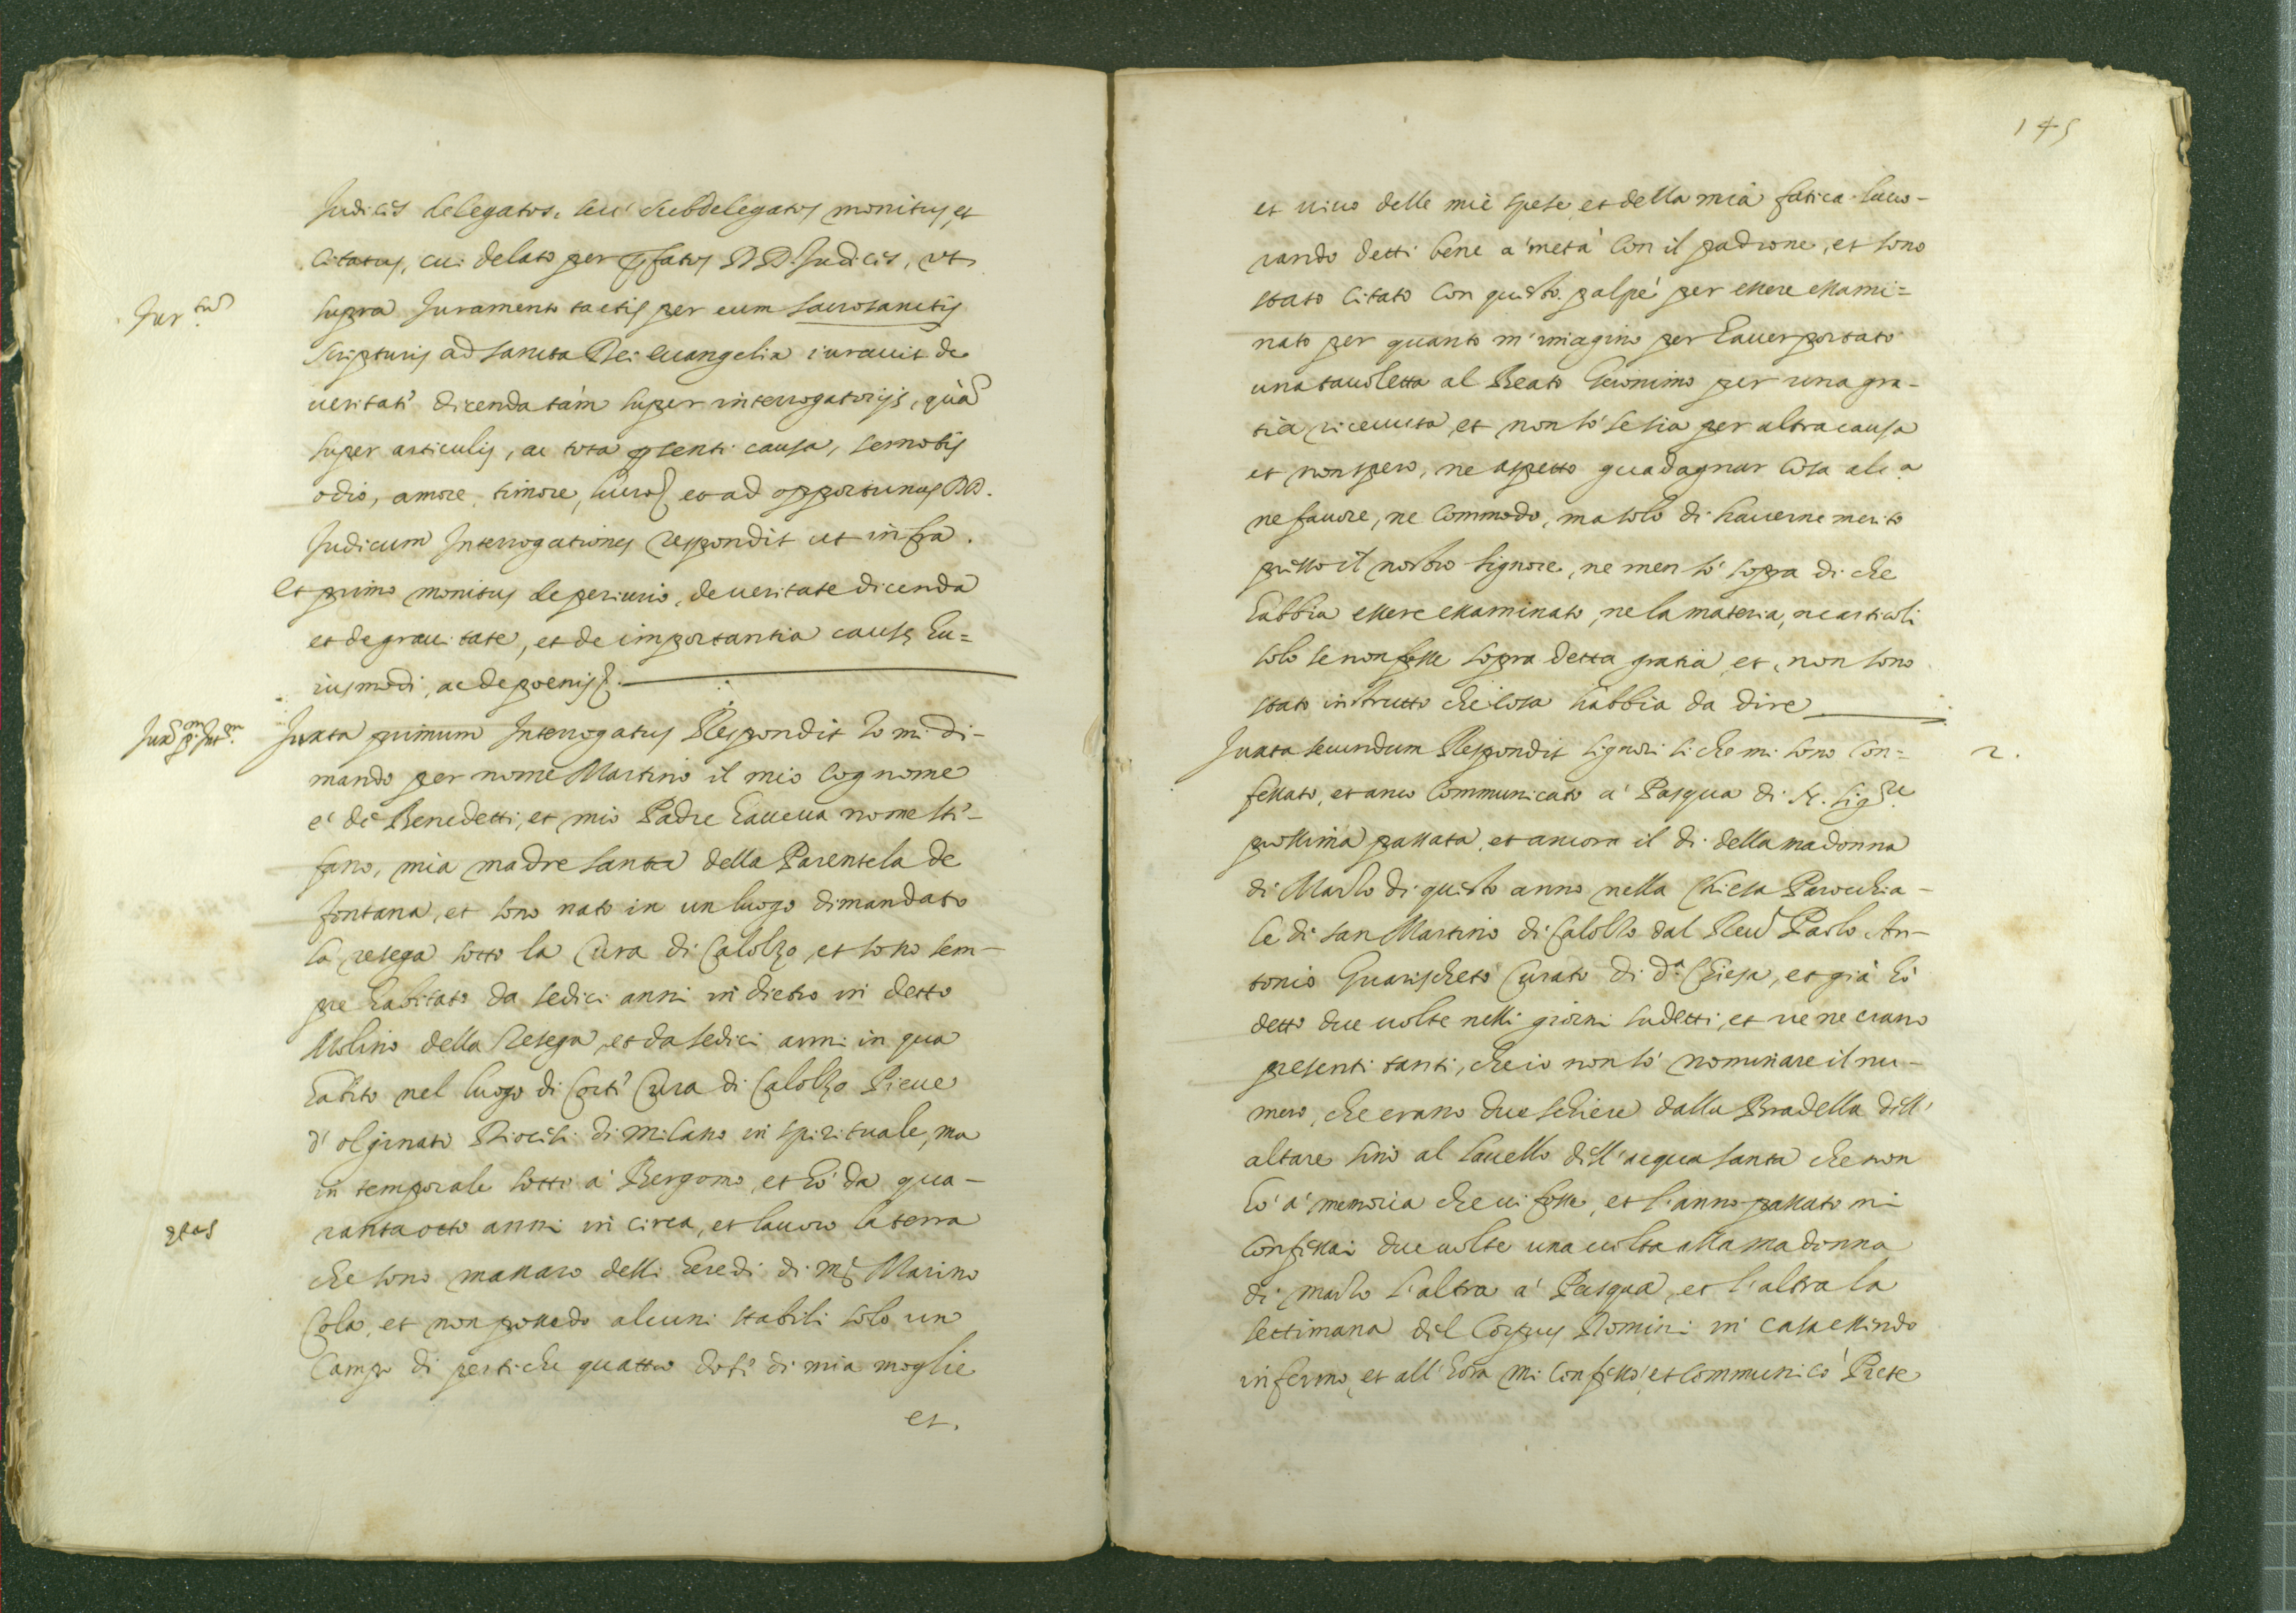 Judices delegatos, seu subdelegatos monitus, et
citatus, cui delato per p̄fatos DD. Judices, ut
Jur.tum
supra Juramento tactis per eum sacrosanctis
scripturis ad sancta Dei euangelia iurauit de
ueritate dicenda tàm super interrogatorijs, quà
super articulis, ac tota p̄senti causa, semotis
odio, amore, timore, lucro et ad opportunas DD.
Judicum Interrogationes respondit ut infra.
Et primo monitus de periurio, de ueritate dicenda
et de grauitate, et de importantia causę hu=
iusmodi, ac de poenis
Juxta primum Interrogatus Respondit Io mi di-
mando per nome Martino il mio cognome
é de Benedetti, et mio Padre haueua nome Ste-
fano, mia madre santa della Parentela de
fontana, et sono nato in un luogo dimandato
la resega sotto la Cura di Calolzo, et sono sem-
pre habitato da sedici anni in dietro in detto
Molino della Resega, et da sedici anni in qua
habito nel luogo di Corte Cura di Calolzo Pieue
d'olginato Diocesi di Milano in spirituale, ma
in temporale sotto a' Bergomo, et hó da qua-
ętas
ranta otto anni in circa, et lauoro la terra
che sono massaro delli heredi di mr Marino
Cola, et non possedo alcuni stabili solo un
Campo di pertiche quattro dote di mia moglie
et.
145
et uiuo delle mie spese, et della mia fatica lauo-
rando detti bene a' metà con il padrone, et sono
stato citato con questo. palpé per essere essami=
nato per quanto m'imagino per hauer portato
una tauoletta al Beato Geronimo per una gra-
tia riceuuta, et non só se sia per altra causa
et non spero, ne aspetto guadagnar cosa alc.a
ne fauore, ne commodo, ma solo di hauerne merito
presso il nostro signore, ne men só sopra di che
habbia essere essaminato, ne la materia, ne articoli
solo se non fosse sopra detta gratia, et non sono
stato instrutto che cosa habbia da dire
Juxta secundum Respondit signori si che mi sono con=
2.
fessato, et anco communicato a' Pasqua di N. Sig.re
prossima passata, et ancora il di della madonna
di Marzo di questo anno nella Chiesa Parochia-
le di san Martino di Calolzo dal Reu.do Paolo An-
tonio Guarischeto Curato di d.a Chiesa, et già hó
detto due uolte nelli giorni sudetti, et ue ne erano
presenti tanti, che io non só nominare il nu-
mero, che erano due schiere dalla Bradella dell'
altare sino al lauello dell'acqua santa che non
hó a' memoria che ui fosse, et l'anno passato mi
confessai due uolte una uolta alla madonna
di marzo l'altra a' Pasqua, et l'altra la
settimana del Corpus Domini in casa essendo
infermo, et all'hora mi confessó, et communicó Prete